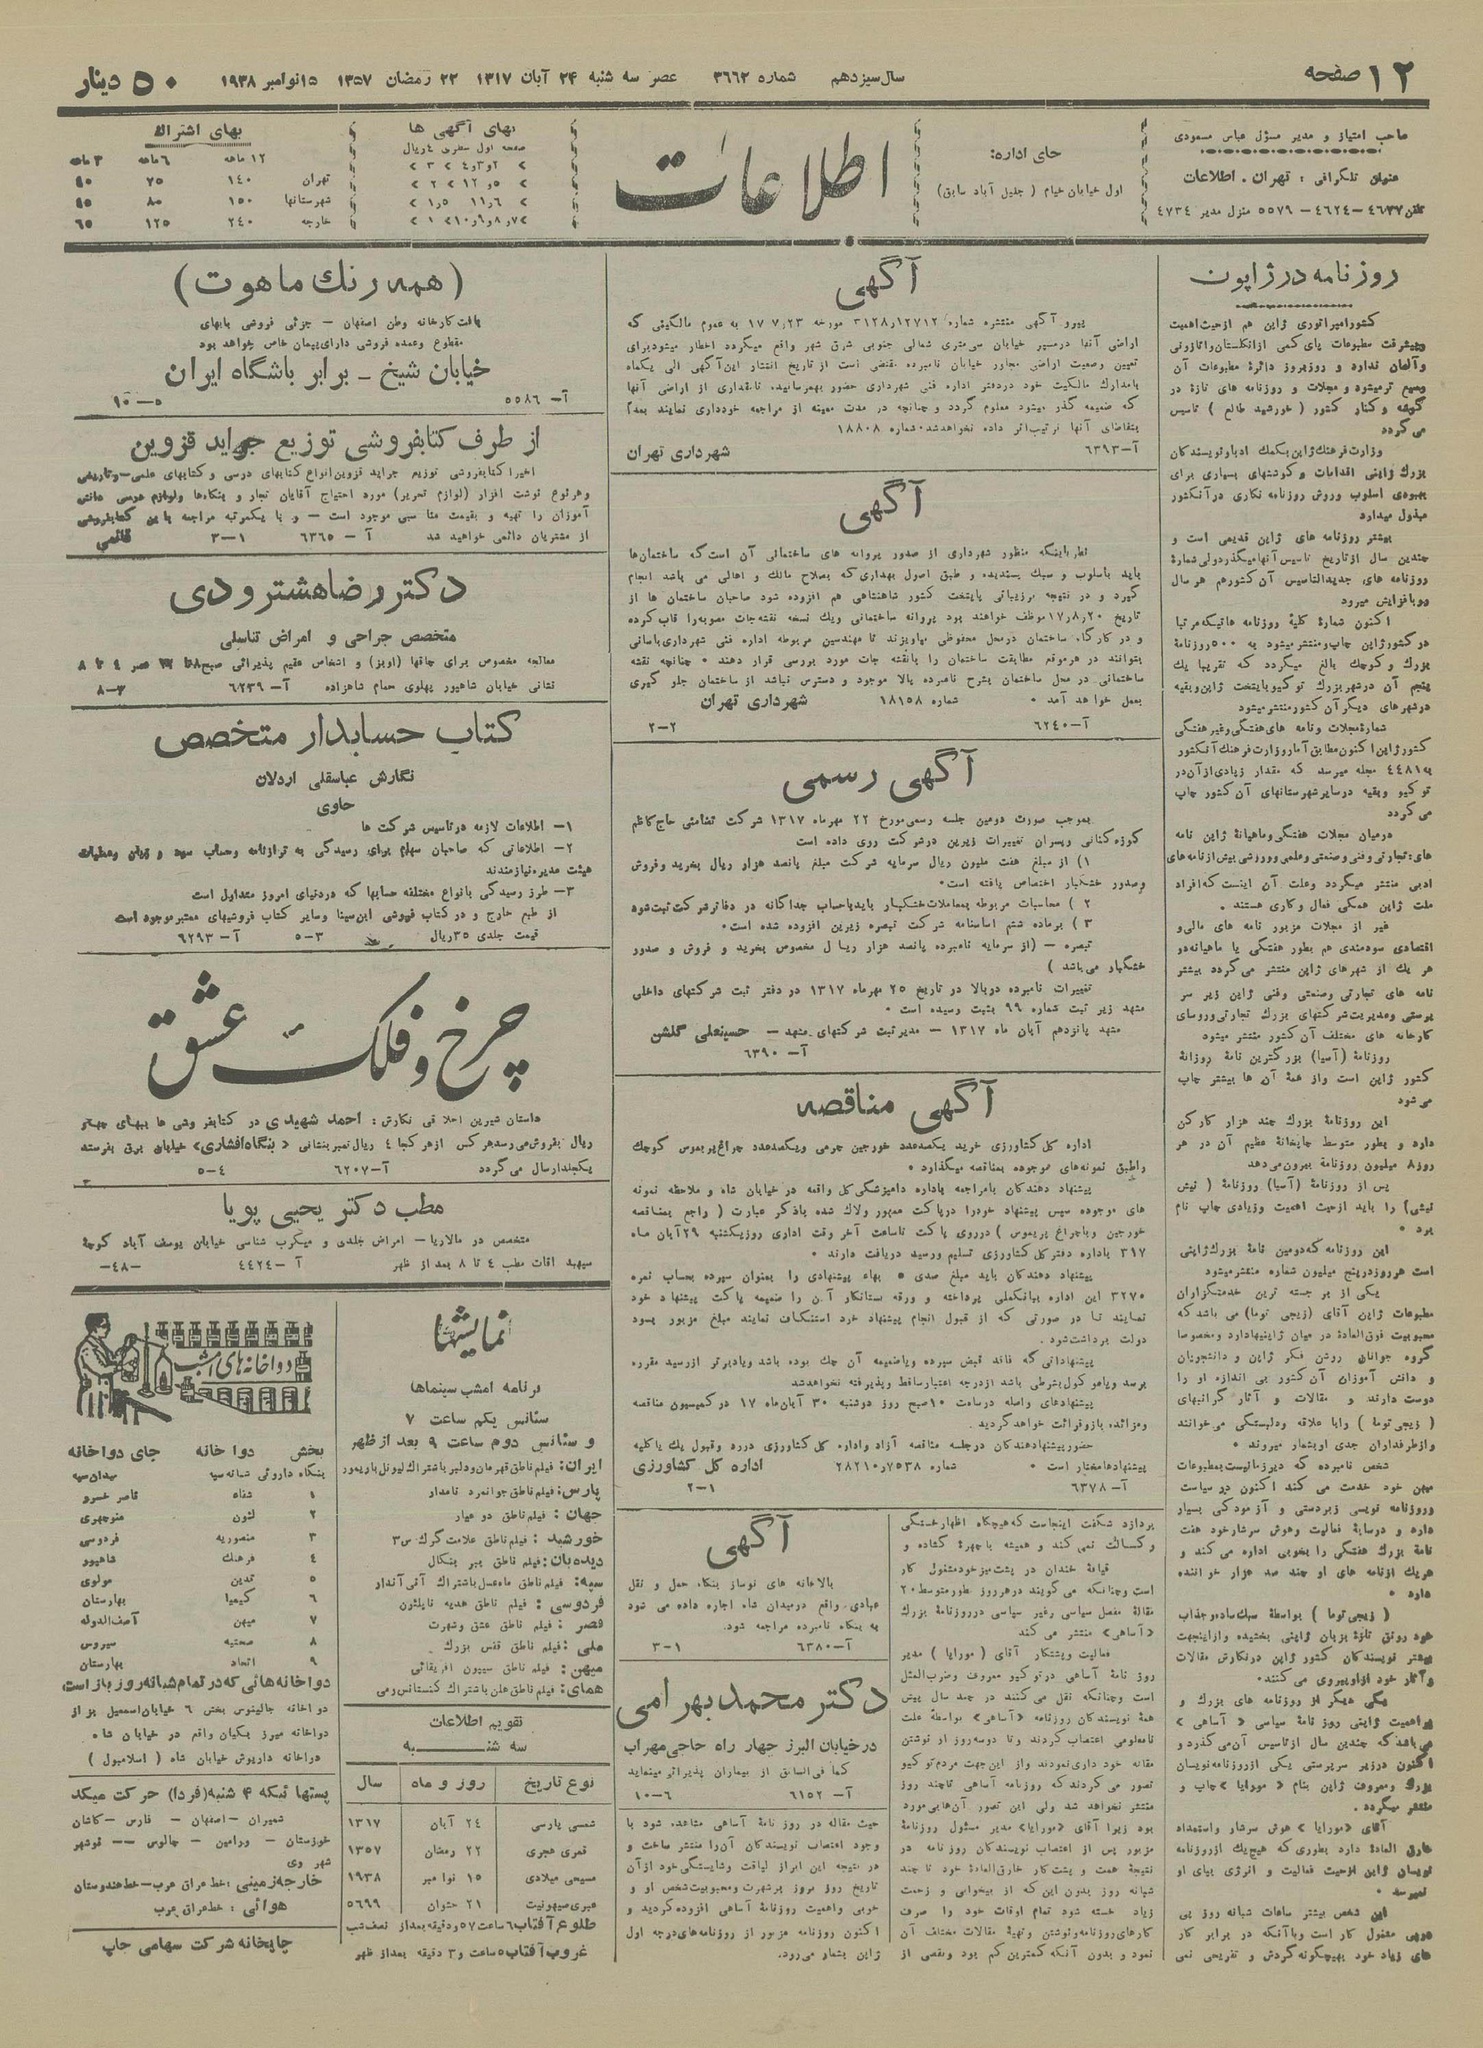 ۱۲ صفحه
سال سیزدهم
شماره ۳۶۶۲
عصر سه شنبه ۲۴ آبان ۱۳۱۷
۲۲ رمضان ۱۳۵۷
۱۵ نوامبر ۱۹۳۸
۵۰ دینار
صاحب امتیاز و مدیر مسؤل عباس مسعودی
عنوان تلگرافی : تهران . اطلاعات
جای اداره:
اول خیابان خیام ( جلیل آباد سابق )
اطلاعات
بهای آگهی ها
صفحه اول سطری ۴ ریال
بهای اشتراك
۱۲ ماهه ۶ ماهه ۳ ماهه
تهران ۱۴۰ ۷۵ ۴۰
شهرستانها ۱۵۰ ۸۰ ۴۵
خارجه ۲۴۰ ۱۲۵ ۶۵
روزنامه در ژاپون
کشور امپراتوری ژاپن هم از حیث اهمیت
و پیشرفت مطبوعات پای کمی از انگلستان و اتازونی
و آلمان ندارد و روزبروز دائرۀ مطبوعات آن
وسیع تر میشود و مجلات و روزنامه های تازه در
گوشه و کنار کشور ( خورشید طالع ) تاسیس
می گردد
وزارت فرهنك ژاپن بکمك ادبا و نویسندگان
بزرك ژاپنی اقدامات و کوششهای بسیاری برای
بهبودی اسلوب و روش روزنامه نگاری در آنکشور
مبذول میدارد
بیشتر روزنامه های ژاپن قدیمی است و
چندین سال از تاریخ تاسیس آنها میگذرد ولی شمارۀ
روزنامه های جدیدالتاسیس آن کشور هم هر سال
رو بافزایش میرود
اکنون شمارۀ کلیۀ روزنامه هائیکه مرتبا
در کشور ژاپن چاپ و منتشر میشود به ۵۰۰ روزنامۀ
بزرك و کوچك بالغ میگردد که تقریبا یك
پنجم آن در شهر بزرك توکیو پایتخت ژاپن و بقیه
در شهر های دیگر آن کشور منتشر میشود
شمارۀ مجلات و نامه های هفتگی و غیر هفتگی
کشور ژاپن اکنون مطابق آمار وزارت فرهنك آنکشور
به ۴۴۸۱ مجله میرسد که مقدار زیادی از آن در
توکیو و بقیه در سایر شهرستانهای آن کشور چاپ
می گردد
درمیان مجلات هفتگی و ماهیانۀ ژاپن نامه
های: تجارتی و فنی و صنعتی و علمی و ورزشی بیش از نامه های
ادبی منتشر میگردد و علت آن اینست که افراد
ملت ژاپن همگی فعال و کاری هستند .
غیر از مجلات مزبور نامه های مالی و
اقتصادی سودمندی هم بطور هفتگی یا ماهیانه در
هر یك از شهر های ژاپن منتشر می گردد بیشتر
نامه های تجارتی و صنعتی و فنی ژاپن زیر سر
پرستی و مدیریت شرکتهای بزرك تجارتی و روسای
کارخانه های مختلف آن کشور منتشر میشود
روزنامۀ (آسیا) بزرگترین نامۀ روزانۀ
کشور ژاپن است و از همۀ آن ها بیشتر چاپ
می شود
این روزنامۀ بزرك چند هزار کارکن
دارد و بطور متوسط چاپخانۀ عظیم آن در هر
روز ۸ میلیون روزنامه بیرون می دهد
پس از روزنامۀ (آسیا) روزنامۀ ( نیش
نیشی ) را باید از حیث اهمیت و زیادی چاپ نام
برد •
این روزنامه که دومین نامۀ بزرك ژاپنی
است هر روز در پنج میلیون شماره منتشر میشود
یکی از بر جسته ترین خدمتگزاران
مطبوعات ژاپن آقای (زیجی توما) می باشد که
محبوبیت فوق العادۀ در میان ژاپنیها دارد و مخصوصا
گروه جوانان روشن فکر ژاپن و دانشجویان
و دانش آموزان آن کشور بی اندازه او را
دوست دارند و مقالات و آثار گرانبهای
( زیجی توما ) را با علاقه و دلبستگی می خوانند
و از طرفداران جدی او بشمار میروند •
شخص نامبرده که دیر زمانیست بمطبوعات
میهن خود خدمت می کند اکنون در سیاست
و روزنامه نویسی زبردستی و آزمودگی بسیار
دارد و در سایۀ فعالیت و هوش سرشار خود هفت
نامۀ بزرك هفتگی را بخوبی اداره می کند و
هریك از نامه های او چند صد هزار خواننده
دارد •
( زیجی توما ) بواسطۀ سبك ساده و جذاب
خود رونق تازۀ بزبان ژاپنی بخشیده و از اینجهت
بیشتر نویسندگان کشور ژاپن در نگارش مقالات
و آثار خود از او پیروی می کنند.
یکی دیگر از روزنامه های بزرك و
پر اهمیت ژاپنی روز نامۀ سیاسی « آساهی »
می باشد که چندین سال از تاسیس آن می گذرد و
اکنون در زیر سرپرستی یکی از روزنامه نویسان
بزرك و معروف ژاپن بنام « مورایا » چاپ و
منتشر میگردد .
آقای «مورایا» هوش سرشار و استعداد
خارق العادۀ دارد بطوری که هیچیك از روزنامه
نویسان ژاپن از حیث فعالیت و انرژی بپای او
نمیرسد •
این شخص بیشتر ساعات شبانه روز بی
در پی مشغول کار است و با آنکه در برابر کار
های زیاد خود بهیچگونه گردش و تفریحی نمی
آگهی
پیرو آگهی منتشره شماره ۳۱۲۸٫۱۲۷۱۲ مورخه ۱۷٫۷٫۲۳ به عموم مالکینی که
اراضی آنها در مسیر خیابان سی متری شمالی جنوبی شرق شهر واقع میگردد اخطار میشود برای
تعیین وضعیت اراضی مجاور خیابان نامبرده مقتضی است از تاریخ انتشار این آگهی الی یکماه
با مدارك مالکیت خود در دفتر اداره فنی شهرداری حضور بهمرسانید، تا مقداری از اراضی آنها
که ضمیمه گذر میشود معلوم گردد و چنانچه در مدت معینه از مراجعه خودداری نمایند بعداً
بتقاضای آنها ترتیب اثر داده نخواهد شد. شماره ۱۸۸۰۸
آ–۶۳۹۳
شهرداری تهران
آگهی
نظر باینکه منظور شهرداری از صدور پروانه های ساختمانی آن است که ساختمان‌ها
باید باسلوب و سبك پسندیده و طبق اصول بهداری که بصلاح مالك و اهالی می باشد انجام
گیرد و در نتیجه بر زیبائی پایتخت کشور شاهنشاهی هم افزوده شود صاحبان ساختمان ها از
تاریخ ۱۷٫۸٫۲۰ موظف خواهند بود پروانه ساختمانی و یك نسخه نقشه جات مصوبه را قاب کرده
و در کارگاه ساختمان در محل محفوظی بیاویزند تا مهندسین مربوطه اداره فنی شهرداری بآسانی
بتوانند در هر موقع مطابقت ساختمان را با نقشه جات مورد بررسی قرار دهند • چنانچه نقشه
ساختمانی در محل ساختمان بشرح نامبرده بالا موجود و دسترس نباشد از ساختمان جلو گیری
بعمل خواهد آمد • شماره ۱۸۱۵۸ شهرداری تهران
آ–۶۲۴۰ ۲–۲
آگهی رسمی
بموجب صورت دومین جلسه رسمی مورخ ۲۲ مهرماه ۱۳۱۷ شرکت تضامنی حاج کاظم
کوزه کنانی و پسران تغییرات زیرین در شرکت روی داده است
۱) از مبلغ هفت ملیون ریال سرمایه شرکت مبلغ پانصد هزار ریال بخرید و فروش
و صدور خشکبار اختصاص یافته است•
۲ ) محاسبات مربوطه بمعاملات خشکبار باید باحساب جداگانه در دفاتر شرکت ثبت شود
۳ ) بر ماده ششم اساسنامه شرکت تبصره زیرین افزوده شده است•
تبصره – (از سرمایه نامبرده پانصد هزار ریال مخصوص بخرید و فروش و صدور
خشگبار می باشد )
تغییرات نامبرده در بالا در تاریخ ۲۵ مهرماه ۱۳۱۷ در دفتر ثبت شرکتهای داخلی
مشهد زیر ثبت شماره ۹۹ بثبت رسیده است •
مشهد پانزدهم آبان ماه ۱۳۱۷ – مدیر ثبت شرکتهای مشهد – حسینعلی گلشن
آ–۶۳۹۰
آگهی مناقصه
اداره کل کشاورزی خرید یکصد عدد خورجین چرمی و یکصد عدد چراغ پریموس کوچك
را طبق نمونه های موجوده بمناقصه میگذارد •
پیشنهاد دهندکان با مراجعه باداره دامپزشکی کل واقعه در خیابان شاه و ملاحظه نمونه
های موجوده سپس پیشنهاد خود را در پاکت ممهور و لاك شده با ذکر عبارت ( راجع بمناقصه
خورجین و یا چراغ پریموس ) در روی پاکت تا ساعت آخر وقت اداری روز یکشنبه ۲۹ آبان ماه
۳۱۷ باداره دفتر کل کشاورزی تسلیم و رسید دریافت دارند •
پیشنهاد دهندکان باید مبلغ صدی ۵ بهاء پیشنهادی را بعنوان سپرده بحساب نمره
۳۲۷۰ این اداره ببانك ملی پرداخته و ورقه ستانکار آن را ضمیمه پاکت پیشنهاد خود
نمایند تا در صورتی که از قبول انجام پیشنهاد خود استنکاف نمایند مبلغ مزبور بسود
دولت برداشت شود.
پیشنهاداتی که فاقد قبض سپرده و یا ضمیمه آن چك بوده باشد و یا دیرتر از رسید مقرره
برسد و یا موکول بشرطی باشد از درجه اعتبار ساقط و پذیرفته نخواهد شد
پیشنهادهای واصله در ساعت ۱۰ صبح روز دوشنبه ۳۰ آبان ماه ۱۷ در کمیسیون مناقصه
و مزائده بازو قرائت خواهد گردید.
حضور پیشنهاد دهندکان در جلسه مناقصه آزاد و اداره کل کشاورزی در رد و قبول یك یا کلیه
پیشنهادها مختار است • شماره ۲۸۲۱۰٫۷۵۳۸ اداره کل کشاورزی
آ–۶۳۷۸ ۱–۲
پردازد شگفت اینجاست که هیچگاه اظهار خستگی
و کسالت نمی کند و همیشه با چهرۀ گشاده و
قیافۀ خندان در پشت میز خود مشغول کار
است و چنانکه می گویند در هر روز بطور متوسط ۲۰
مقالۀ مفصل سیاسی و غیر سیاسی در روزنامۀ بزرك
«آساهی» منتشر می کند
فعالیت و پشتکار آقای ( مورایا ) مدیر
روز نامۀ آساهی در توکیو معروف و ضرب المثل
است و چنانکه نقل می کنند در چند سال پیش
همۀ نویسندکان روزنامه «آساهی» بواسطۀ علت
نامعلومی اعتصاب کردند و تا دو سه روز از نوشتن
مقاله خود داری نمودند و از این جهت مردم توکیو
تصور می کردند که روزنامه آساهی تا چند روز
منتشر نخواهد شد ولی این تصور آن ها بی مورد
بود زیرا آقای «مورایا» مدیر مسئول روزنامۀ
مزبور پس از اعتصاب نویسندکان روزنامه در
نتیجۀ همت و پشت کار خارق العادۀ خود تا چند
شبانه روز بدون این که از بیخوابی و زحمت
زیاد خسته شود تمام اوقات خود را صرف
کارهای روزنامه و نوشتن و تهیۀ مقالات مختلف آن
نمود و بدون آنکه کمترین کم بود و نقصی از
آگهی
بالاخانه های نوساز بنگاه حمل و نقل
عبادی واقع در میدان شاه اجاره داده می شود
به بنگاه نامبرده مراجعه شود.
آ–۶۳۸۰ ۱–۳
دکتر محمد بهرامی
در خیابان البرز چهار راه حاجی مهراب
کما فی السابق از بیماران پذیرائی مینماید
آ–۶۱۵۲ ۶–۱۰
حیث مقاله در روز نامۀ آساهی مشاهده شود با
وجود اعتصاب نویسندگان آن را منتشر ساخت و
در نتیجه این ابراز لیاقت و شایستگی خود از آن
تاریخ روز بروز بر شهرت و محبوبیت شخص او و
خوبی و اهمیت روزنامۀ آساهی افزوده گردید و
اکنون روزنامه مزبور از روزنامه های درجه اول
ژاپن بشمار می رود.
(همه رنك ماهوت)
بافت کارخانه وطن اصفهان – جزئی فروشی ببهای
مقطوع و عمده فروشی دارای پیمان خاص خواهد بود
خیابان شیخ – برابر باشگاه ایران
آ–۵۵۸۶ ۵–۱۰
از طرف کتابفروشی توزیع جراید قزوین
اخیرا کتابفروشی توزیع جراید قزوین انواع کتابهای درسی و کتابهای علمی و تاریخی
و هر نوع نوشت افزار (لوازم تحریر) مورد احتیاج آقایان تجار و بنگاه ها و لوازم درسی دانش
آموزان را تهیه و بقیمت مناسبی موجود است – و با یکمرتبه مراجعه باین کتابفروشی
از مشتریان دائمی خواهید شد آ–۶۳۶۵ ۱–۳ قائمی
دکتر رضا هشترودی
متخصص جراحی و امراض تناسلی
نشانی خیابان شاهپور پهلوی حمام شاهزاده آ–۶۲۳۹ ۳–۸
کتاب حسابدار متخصص
نگارش عباسقلی اردلان
حاوی
۱– اطلاعات لازمه در تاسیس شرکت ها
۲– اطلاعاتی که صاحبان سهام برای رسیدگی به ترازنامه و حساب سود و زیان و عملیات
هیئت مدیره نیازمندند
۳– طرز رسیدگی بانواع مختلفه حسابها که در دنیای امروز متداول است
از طبع خارج و در کتاب فروشی ابن سینا و سایر کتاب فروشیهای معتبر موجود است
قیمت جلدی ۳۵ ریال ۳–۵ آ–۶۲۹۳
چرخ و فلک عشق
داستان شیرین اخلاقی نگارش: احمد شهیدی در کتابفروشی ها ببهای چهار
ریال بفروش می رسد هر کس از هر کجا ۴ ریال تمبر بنشانی «بنگاه افشاری» خیابان برق بفرستد
یکجلد ارسال می گردد آ–۶۲۰۷ ۴–۵
مطب دکتر یحیی پویا
متخصص در مالاریا – امراض جلدی و میکرب شناسی خیابان یوسف آباد کوچۀ
سپهبد اقات مطب ۴ تا ۸ بعد از ظهر آ–۴۴۲۴ –۴۸–
نمایشها
برنامه امشب سینماها
سئانس یکم ساعت ۷
و سئانس دوم ساعت ۹ بعد از ظهر
ایران: فیلم ناطق قهرمان و دلبر باشتراك لیونل باریمور
پارس: فیلم ناطق جوانمرد نامدار
جهان: فیلم ناطق دو عیار
خورشید : فیلم ناطق علامت گرك س۳
دیده بان: فیلم ناطق ببر بنگال
سپه: فیلم ناطق ماه عسل باشتراك آنی آندار
فردوسی: فیلم ناطق هدیه ناپلئون
قصر: فیلم ناطق عشق و شهرت
ملی: فیلم ناطق قفس بزرك
میهن: فیلم ناطق سیپون افریقائی
همای: فیلم ناطق علن باشتراك کنستانس رمی
تقویم اطلاعات
سه شنبه
نوع تاریخ روز و ماه سال
شمسی پارسی ۲۴ آبان ۱۳۱۷
قمری هجری ۲۲ رمضان ۱۳۵۷
مسیحی میلادی ۱۵ نوامبر ۱۹۳۸
عبری صیهونیت ۲۱ حشوان ۵۶۹۹
طلوع آفتاب ۶ ساعت ۵۷ دقیقه بعد از نصف شب
غروب آفتاب ۵ ساعت و ۳ دقیقه بعد از ظهر
دواخانه های امشب
بخش دواخانه جای دواخانه
بنگاه داروئی شبانه سپه میدان سپه
۱ شفاء ناصر خسرو
۲ لئون منوچهری
۳ منصوریه فردوسی
۴ فرهنك شاهپور
۵ تدین مولوی
۶ کیمیا بهارستان
۷ میهن آصف الدوله
۸ صحتیه سیروس
۹ اتحاد بهارستان
دواخانه هائی که در تمام شبانه روز باز است
دواخانه جالینوس بخش ۶ خیابان اسمعیل بزاز
دواخانه میرزیکیان واقع در خیابان شاه
دواخانه داریوش خیابان شاه ( اسلامبول )
پستها ئیکه ۴ شنبه (فردا) حرکت میکند
شمیران – اصفهان – فارس – کاشان
خوزستان – ورامین – چالوس – نوشهر
شهر ری
خارجه زمینی: خط عراق عرب – خط هندوستان
هوائی : خط عراق عرب
چاپخانه شرکت سهامی چاپ